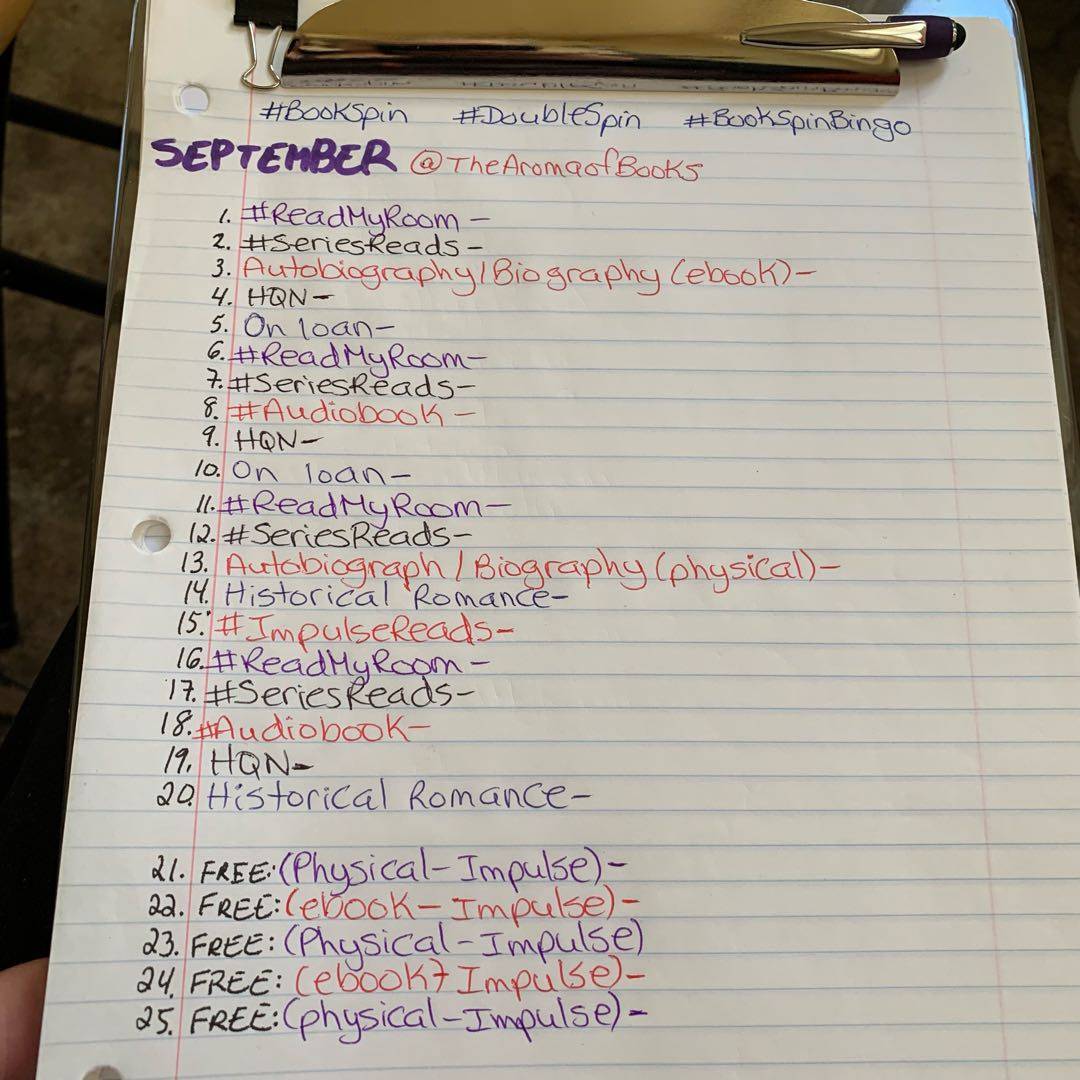 #BookSpin #DoubleSpin #BookSpinBingo
SEPTEMBER @TheAromaofBooks
1. #ReadMyRoom -
2. #SeriesReads -
3. Autobiography/Biography (ebook)-
4. HQN-
5. On loan-
6. #ReadMyRoom-
7. #SeriesReads-
8. #Audiobook -
9. HQN-
10. On loan-
11. #ReadMyRoom-
12. #SeriesReads-
13. Autobiograph/Biography (physical)-
14. Historical Romance-
15. #ImpulseReads-
16. #ReadMyRoom -
17. #SeriesReads-
18. #Audiobook-
19. HQN-
20. Historical Romance-
21. FREE: (Physical-Impulse)-
22. FREE: (ebook-Impulse)-
23. FREE: (Physical-Impulse)
24. FREE: (ebook-Impulse)-
25. FREE: (physical-Impulse)-